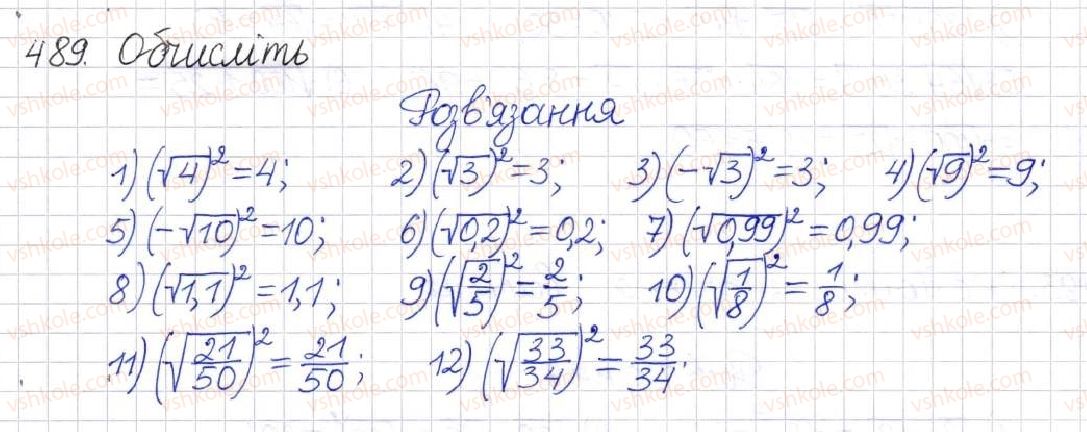 489. Обчисліть
Розв'язання
1) (√4)² = 4; 2) (√3)² = 3; 3) (-√3)² = 3; 4) (√9)² = 9;
5) (-√10)² = 10; 6) (√0,2)² = 0,2; 7) (√0,99)² = 0,99;
8) (√1,1)² = 1,1; 9) (√2/5)² = 2/5; 10) (√1/8)² = 1/8;
11) (√21/50)² = 21/50; 12) (√33/34)² = 33/34.